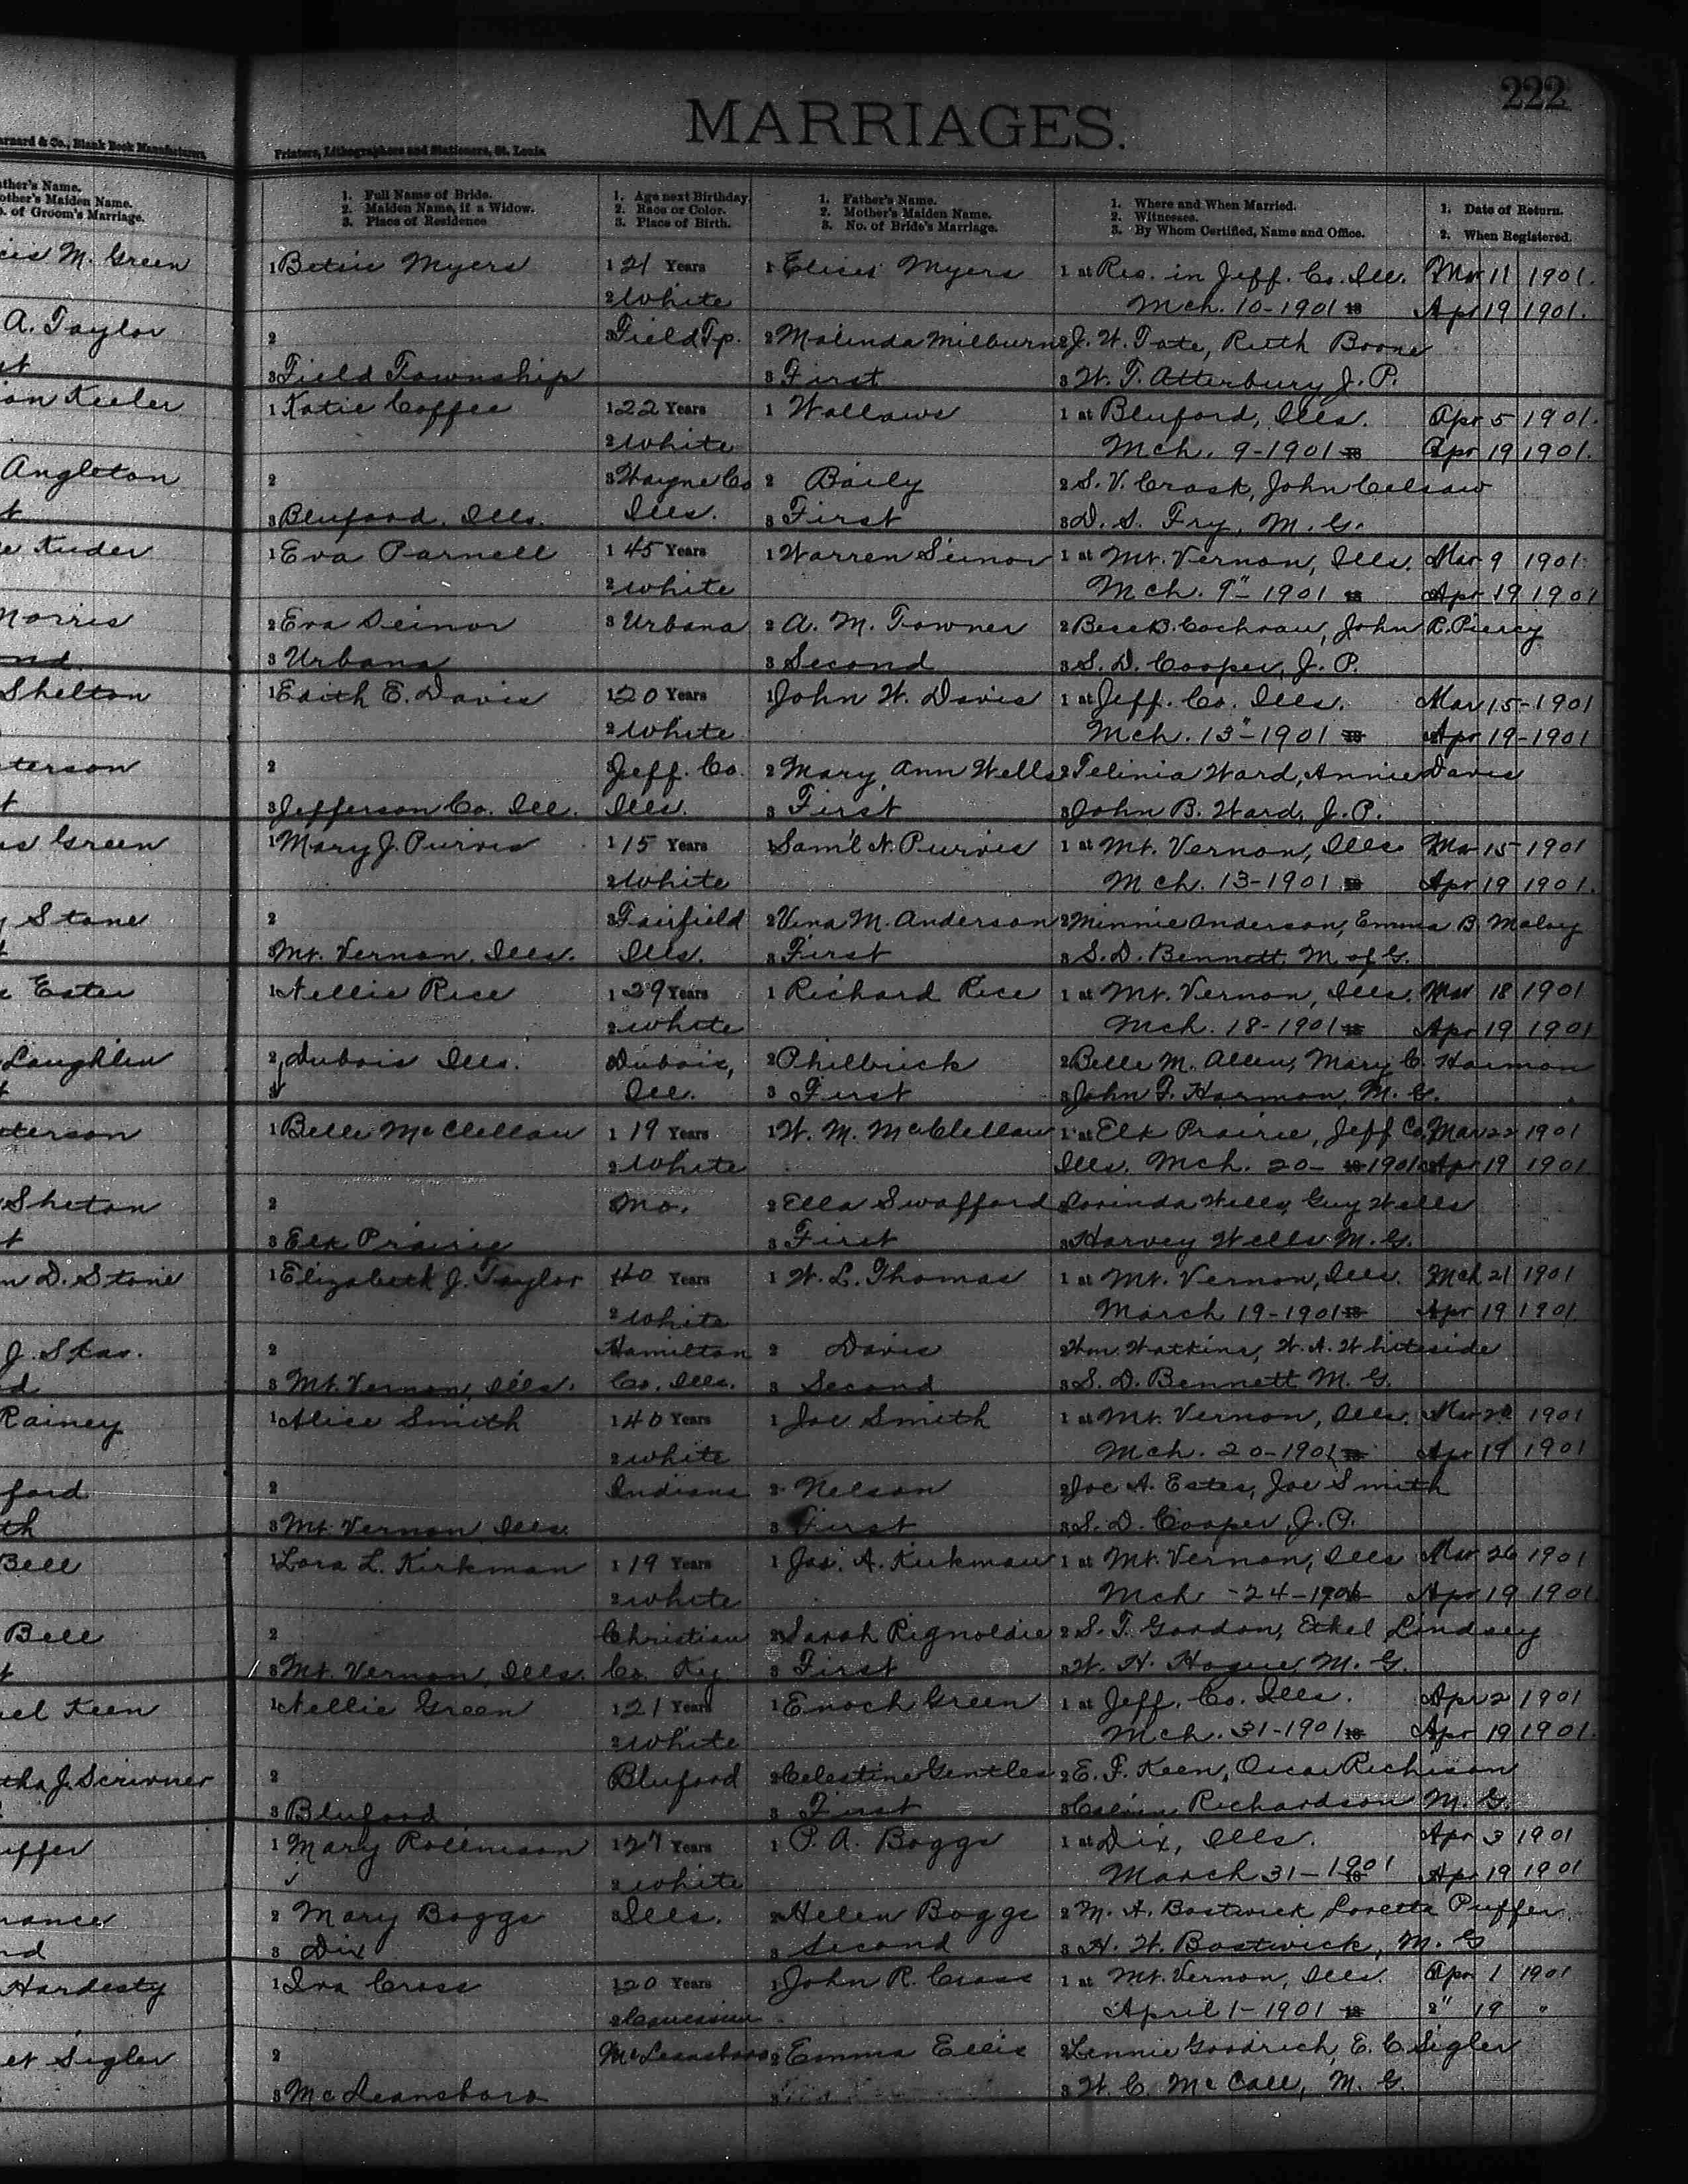 222
MARRIAGES.
arnard & Co., Blank Book Manufacturers
Printers, Lithographers and Stationers, St. Louis.
ather's Name.
other's Maiden Name.
o. of Groom's Marriage.
1. Full Name of Bride.
2. Maiden Name, if a Widow.
3. Place of Residence
1. Age next Birthday.
2. Race or Color.
3. Place of Birth.
1. Father's Name.
2. Mother's Maiden Name.
3. No. of Bride's Marriage.
1. Where and When Married.
2. Witnesses.
3. By Whom Certified, Name and Office.
1. Date of Return.
2. When Registered.
cis M. Green 1 Betsie Myers 1 21 Years 1 Myers 1 at Res. in Jeff. Co. Ill. Mar 11 1901.
2 White Mch. 10-1901 18 Apr 19 1901.
A. Taylor 2 3 Field Tp. 2 Malinda Milburn 2 J. W. Tate, Ruth Boone
st 3 Field Township 3 First 3 W. T. Atterbury J. P.
on Keeler 1 Katie Coffee 1 22 Years 1 1 at Bluford, Ills. Apr 5 1901.
2 White Mch. 9-1901 18 Apr 19 1901.
Angleton 2 3 Wayne Co 2 Baily 2 S. V. Crask, John
t 3 Bluford, Ills. Ills. 3 First 3 D. S. Fry, M. G.
e Kuder 1 Eva Parnell 1 45 Years 1 Warren 1 at Mt. Vernon, Ills. Mar 9 1901
2 White Mch. 9" 1901 18 Apr 19 1901
Norris 2 Eva 3 Urbana 2 A. M. Towner 2 B. Cochran, John R. Piercy
nd. 3 Urbana 3 Second 3 S. D. Cooper, J. P.
Shelton 1 Edith E. Davis 1 20 Years 1 John W. Davis 1 at Jeff. Co. Ills. Mar 15-1901
2 White Mch. 13"-1901 18 Apr 19-1901
terson 2 Jeff. Co. 2 Mary Ann Wells 2 Telinia Ward, Annie Davis
t 3 Jefferson Co. Ill. Ills. 3 First 3 John B. Ward, J. P.
is Green 1 Mary J. Purvis 1 15 Years 1 Sam'l N. Purvis 1 at Mt. Vernon, Ills Mar 15-1901
2 White Mch. 13-1901 18 Apr 19 1901.
y Stone 2 3 Fairfield 2 Vina M. Anderson 2 Minnie Anderson, Emma B. Maloy
t 3 Mt. Vernon, Ills. Ills. 3 First 3 S. D. Bennett, M. of G.
Estes 1 Nellie Rice 1 29 Years 1 Richard Rice 1 at Mt. Vernon, Ills. Mar 18 1901
2 White Mch. 18-1901 18 Apr 19 1901
Laughlin 2 Dubois Ills. 3 Dubois, 2 Philbrick 2 Belle M. Allen, Mary C. Harmon
t 3 Ill. 3 First 3 John T. Harmon, M. G.
terson 1 Belle McClellan 1 19 Years 1 W. M. McClellan 1 at Elk Prairie, Jeff Co, Mar 22 1901
2 White Ills. Mch. 20- 18 1901 Apr 19 1901
Sheton 2 3 Mo. 2 Ella Swafford Lorinda Wells, Guy Wells
t 3 Elk Prairie 3 First 3 Harvey Wells M. G.
n D. Stone 1 Elizabeth J. Taylor 40 Years 1 W. L. Thomas 1 at Mt. Vernon, Ills. Mch 21 1901
2 White March 19-1901 18 Apr 19 1901
J. 2 Hamilton 2 Davis 2 Wm. Watkins, W. A. Whiteside
d 3 Mt. Vernon, Ills. Co. Ills. 3 Second 3 S. D. Bennett M. G.
Rainey 1 Alice Smith 1 40 Years 1 Joe Smith 1 at Mt. Vernon, Ills. Mar 1901
2 White Mch. 20-1901 18 Apr 19 1901
ford 2 Indiana 2 Nelson 2 Joe A. Estes, Joe Smith
th 3 Mt. Vernon Ills. 3 First 3 S. D. Cooper, J. P.
Bell 1 Lora L. Kirkman 1 19 Years 1 Jas. A. Kirkman 1 at Mt. Vernon, Ills Mar 26 1901
2 White Mch -24-1901 Apr 19 1901
Bell 2 Christian 2 Sarah Rignoldie 2 S. T. Gordon, Ethel Lindsey
t 3 Mt. Vernon, Ills. Co. Ky 3 First 3 W. H. Hogue M. G.
el Keen 1 Nellie Green 1 21 Years 1 Enoch Green 1 at Jeff. Co. Ills. Apr 2 1901
2 White Mch. 31-1901 18 Apr 19 1901.
tha J. Scrivner 2 Bluford 2 Celestine Gentles 2 E. F. Keen, Oscar Richison
3 Bluford 3 First 3 Calvin Richardson M. G.
uffer 1 Mary Rollinson 1 27 Years 1 P. A. Boggs 1 at Dix, Ills. Apr 3 1901
2 White March 31-1901 18 Apr 19 1901
nance 2 Mary Boggs 3 Ills. 2 Helen Boggs 2 M. A. Bostwick Loretta Puffer
nd 3 Dix 3 Second 3 H. W. Bostwick, M. G
Hardesty 1 Iva Cross 1 20 Years 1 John R. Cross 1 at Mt. Vernon, Ills. Apr 1 1901
2 Caucasian April 1-1901 18 2 " 19 "
et Sigler 2 McLeansboro 2 Emma Ellis 2 Lennie Goodrich, E. C. Sigler
3 McLeansboro 3 3 W. C. McCall, M. G.